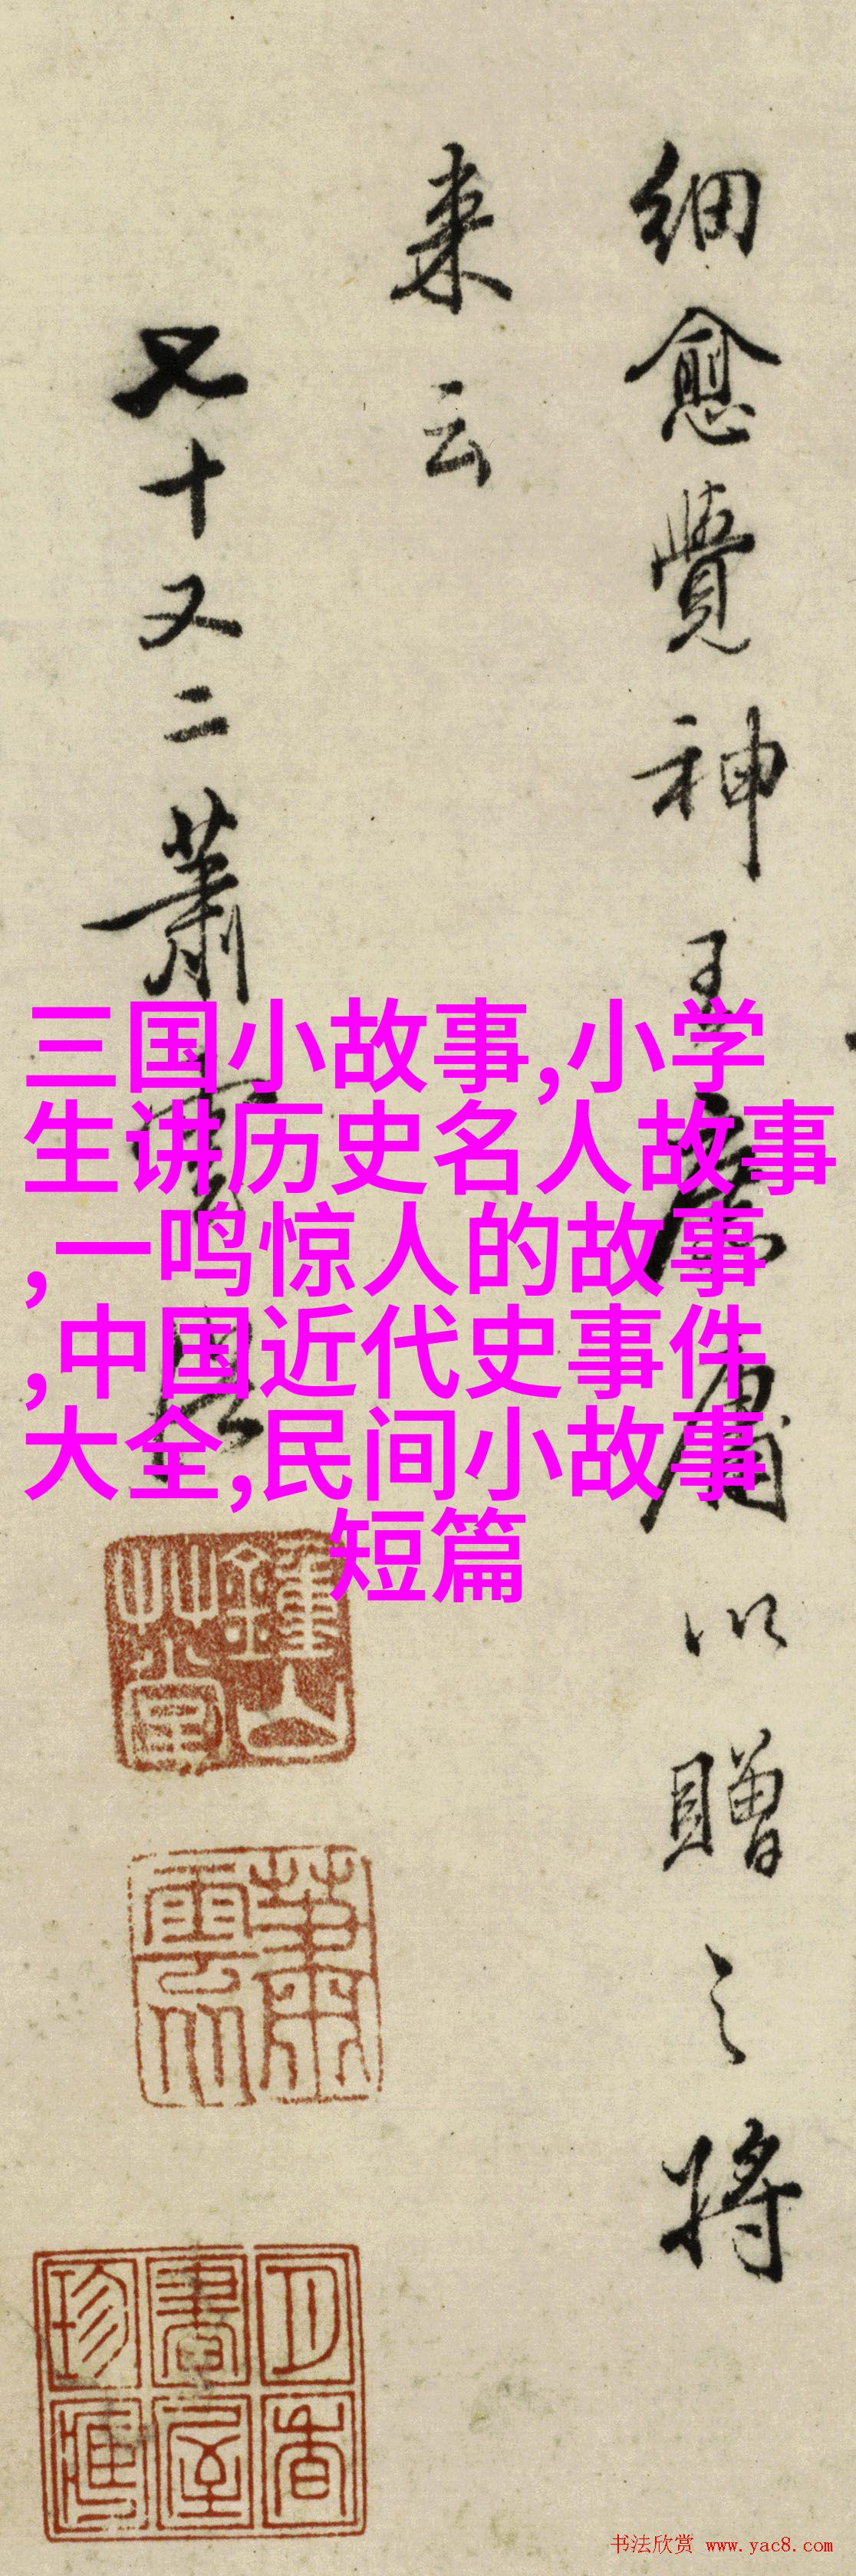 細愈覺神王
庸以贈之將
来云
七十又二蕭雲從
三国小故事,小学
生讲历史名人故事
,一鸣惊人的故事
,中国近代史事件
大全,民间小故事
短篇
鍾山
艸堂
蕭
雲從
書屋
珍
书法欣赏 www.yac8.com